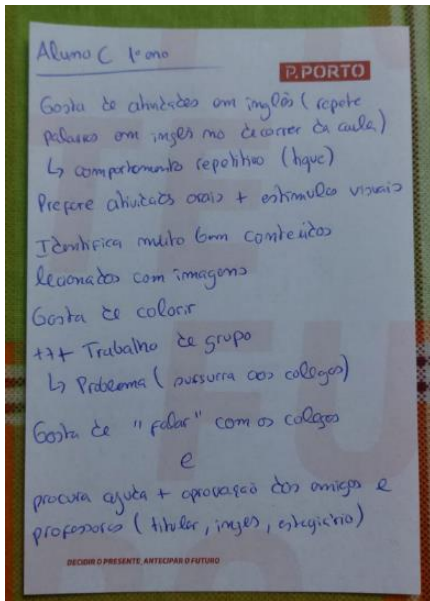 Aluno C 1º ano
P.PORTO
Gosta de atividades em inglês (repete
palavras em inglês no decorrer da aula)
↳ comportamento repetitivo (tique)
Prefere atividades orais + estímulos visuais
Identifica muito bem conteúdos
lecionados com imagens
Gosta de colorir
+++ Trabalho de grupo
↳ Problema (sussurra aos colegas)
Gosta de "falar" com os colegas
e
procura ajuda + aprovação dos amigos e
professores (titular, inglês, estagiário)
DECIDIR O PRESENTE, ANTECIPAR O FUTURO